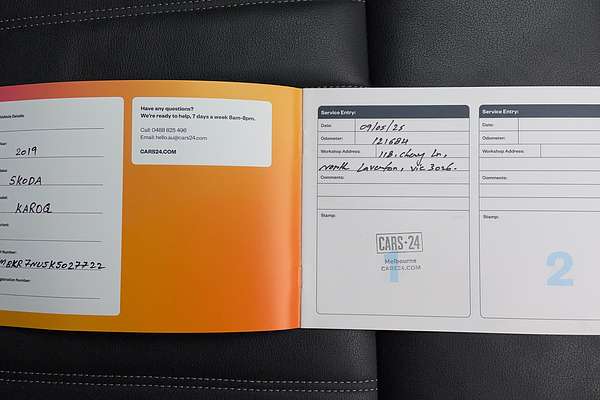 Vehicle Details:
Year:
2019
SKODA
Model:
KAROQ
VIN Number:
Registration Number:
Have any questions?
We're ready to help, 7 days a week 8am-8pm.
Call: 0488 825 496
Email: hello.au@cars24.com
CARS24.COM
Service Entry:
Date: 09/05/25
Odometer: 121684
Workshop Address: 118, Cherry Ln,
North Laverton, VIC 3026.
Comments:
Stamp:
1
CARS-24
Melbourne
CARS24.COM
Service Entry:
Date:
Odometer:
Workshop Address:
Comments:
Stamp:
2